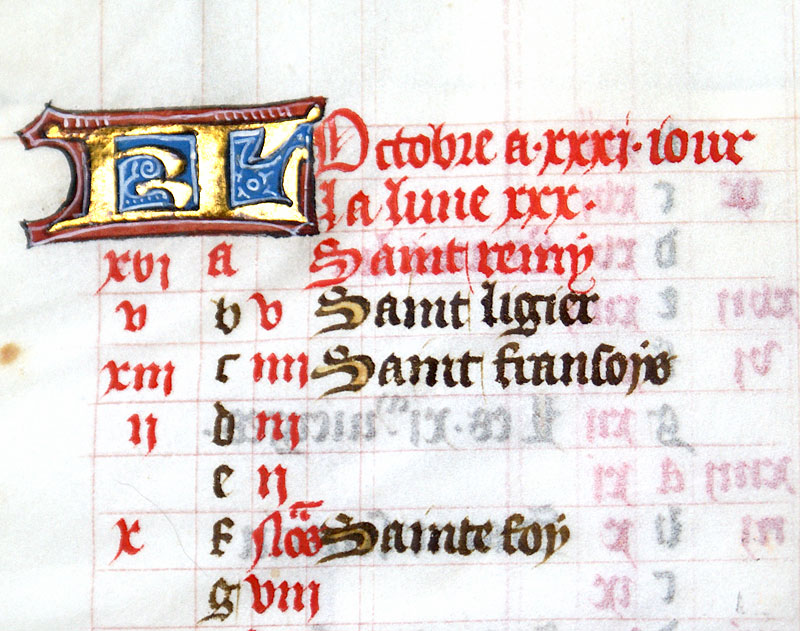 KL Octobre a·xxxi·iour
La lune xxx·
xvi a Saint remy
v b v Saint ligier
xiii c iiii Saint fransoys
ii d iii
e ii
x f Nōs Sainte foy
g viii